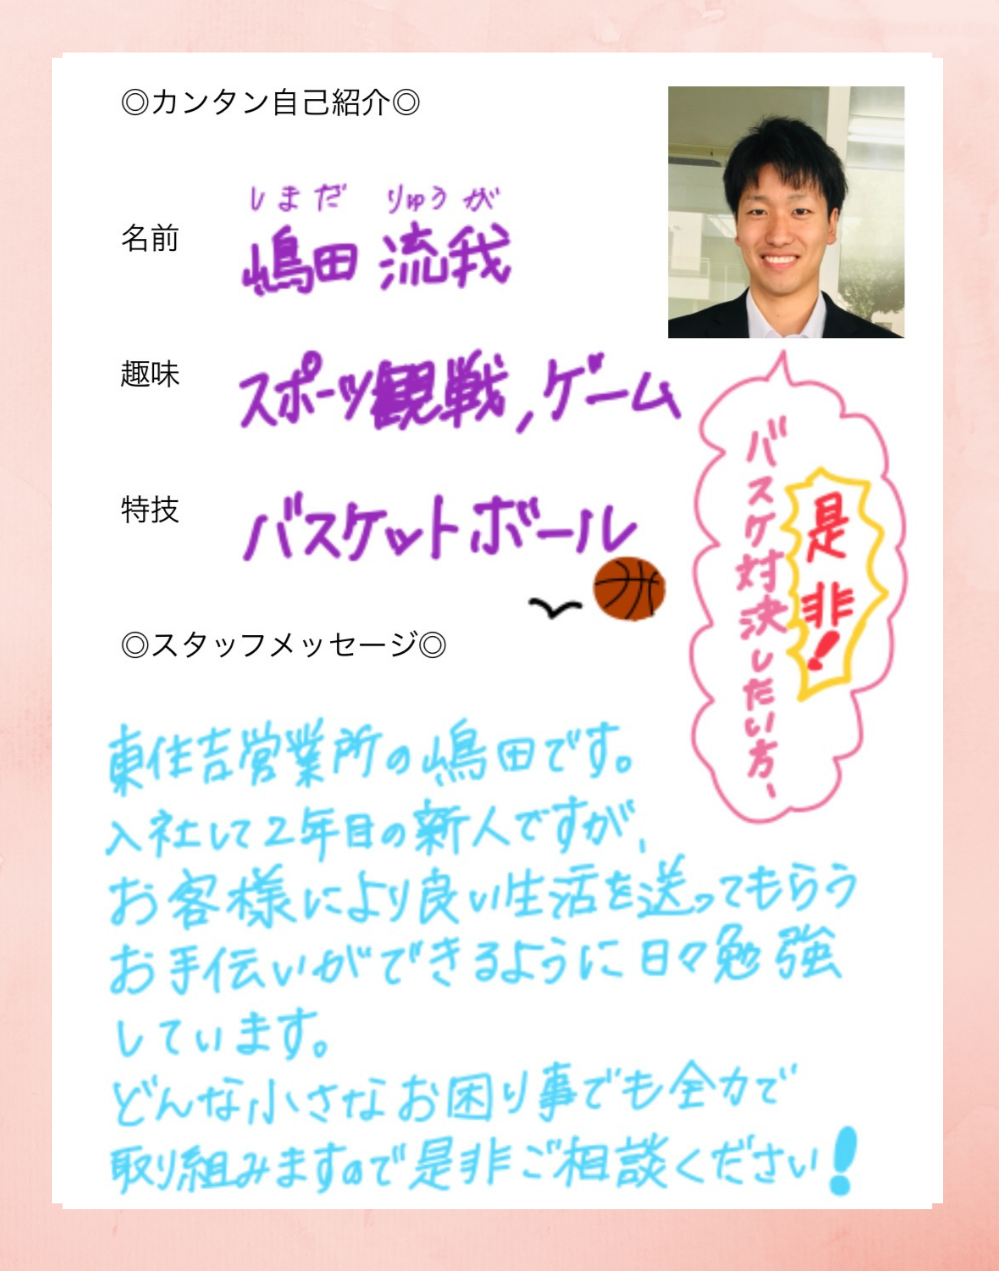 ◎カンタン自己紹介◎
名前
しまだ りゅうが
嶋田 流我
趣味
スポーツ観戦,ゲーム
特技
バスケットボール
バスケ対決したい方、
是非!
◎スタッフメッセージ◎
東住吉営業所の嶋田です。
入社して2年目の新人ですが、
お客様により良い生活を送ってもらう
お手伝いができるように日々勉強
しています。
どんな小さなお困り事でも全力で
取り組みますので是非ご相談ください!